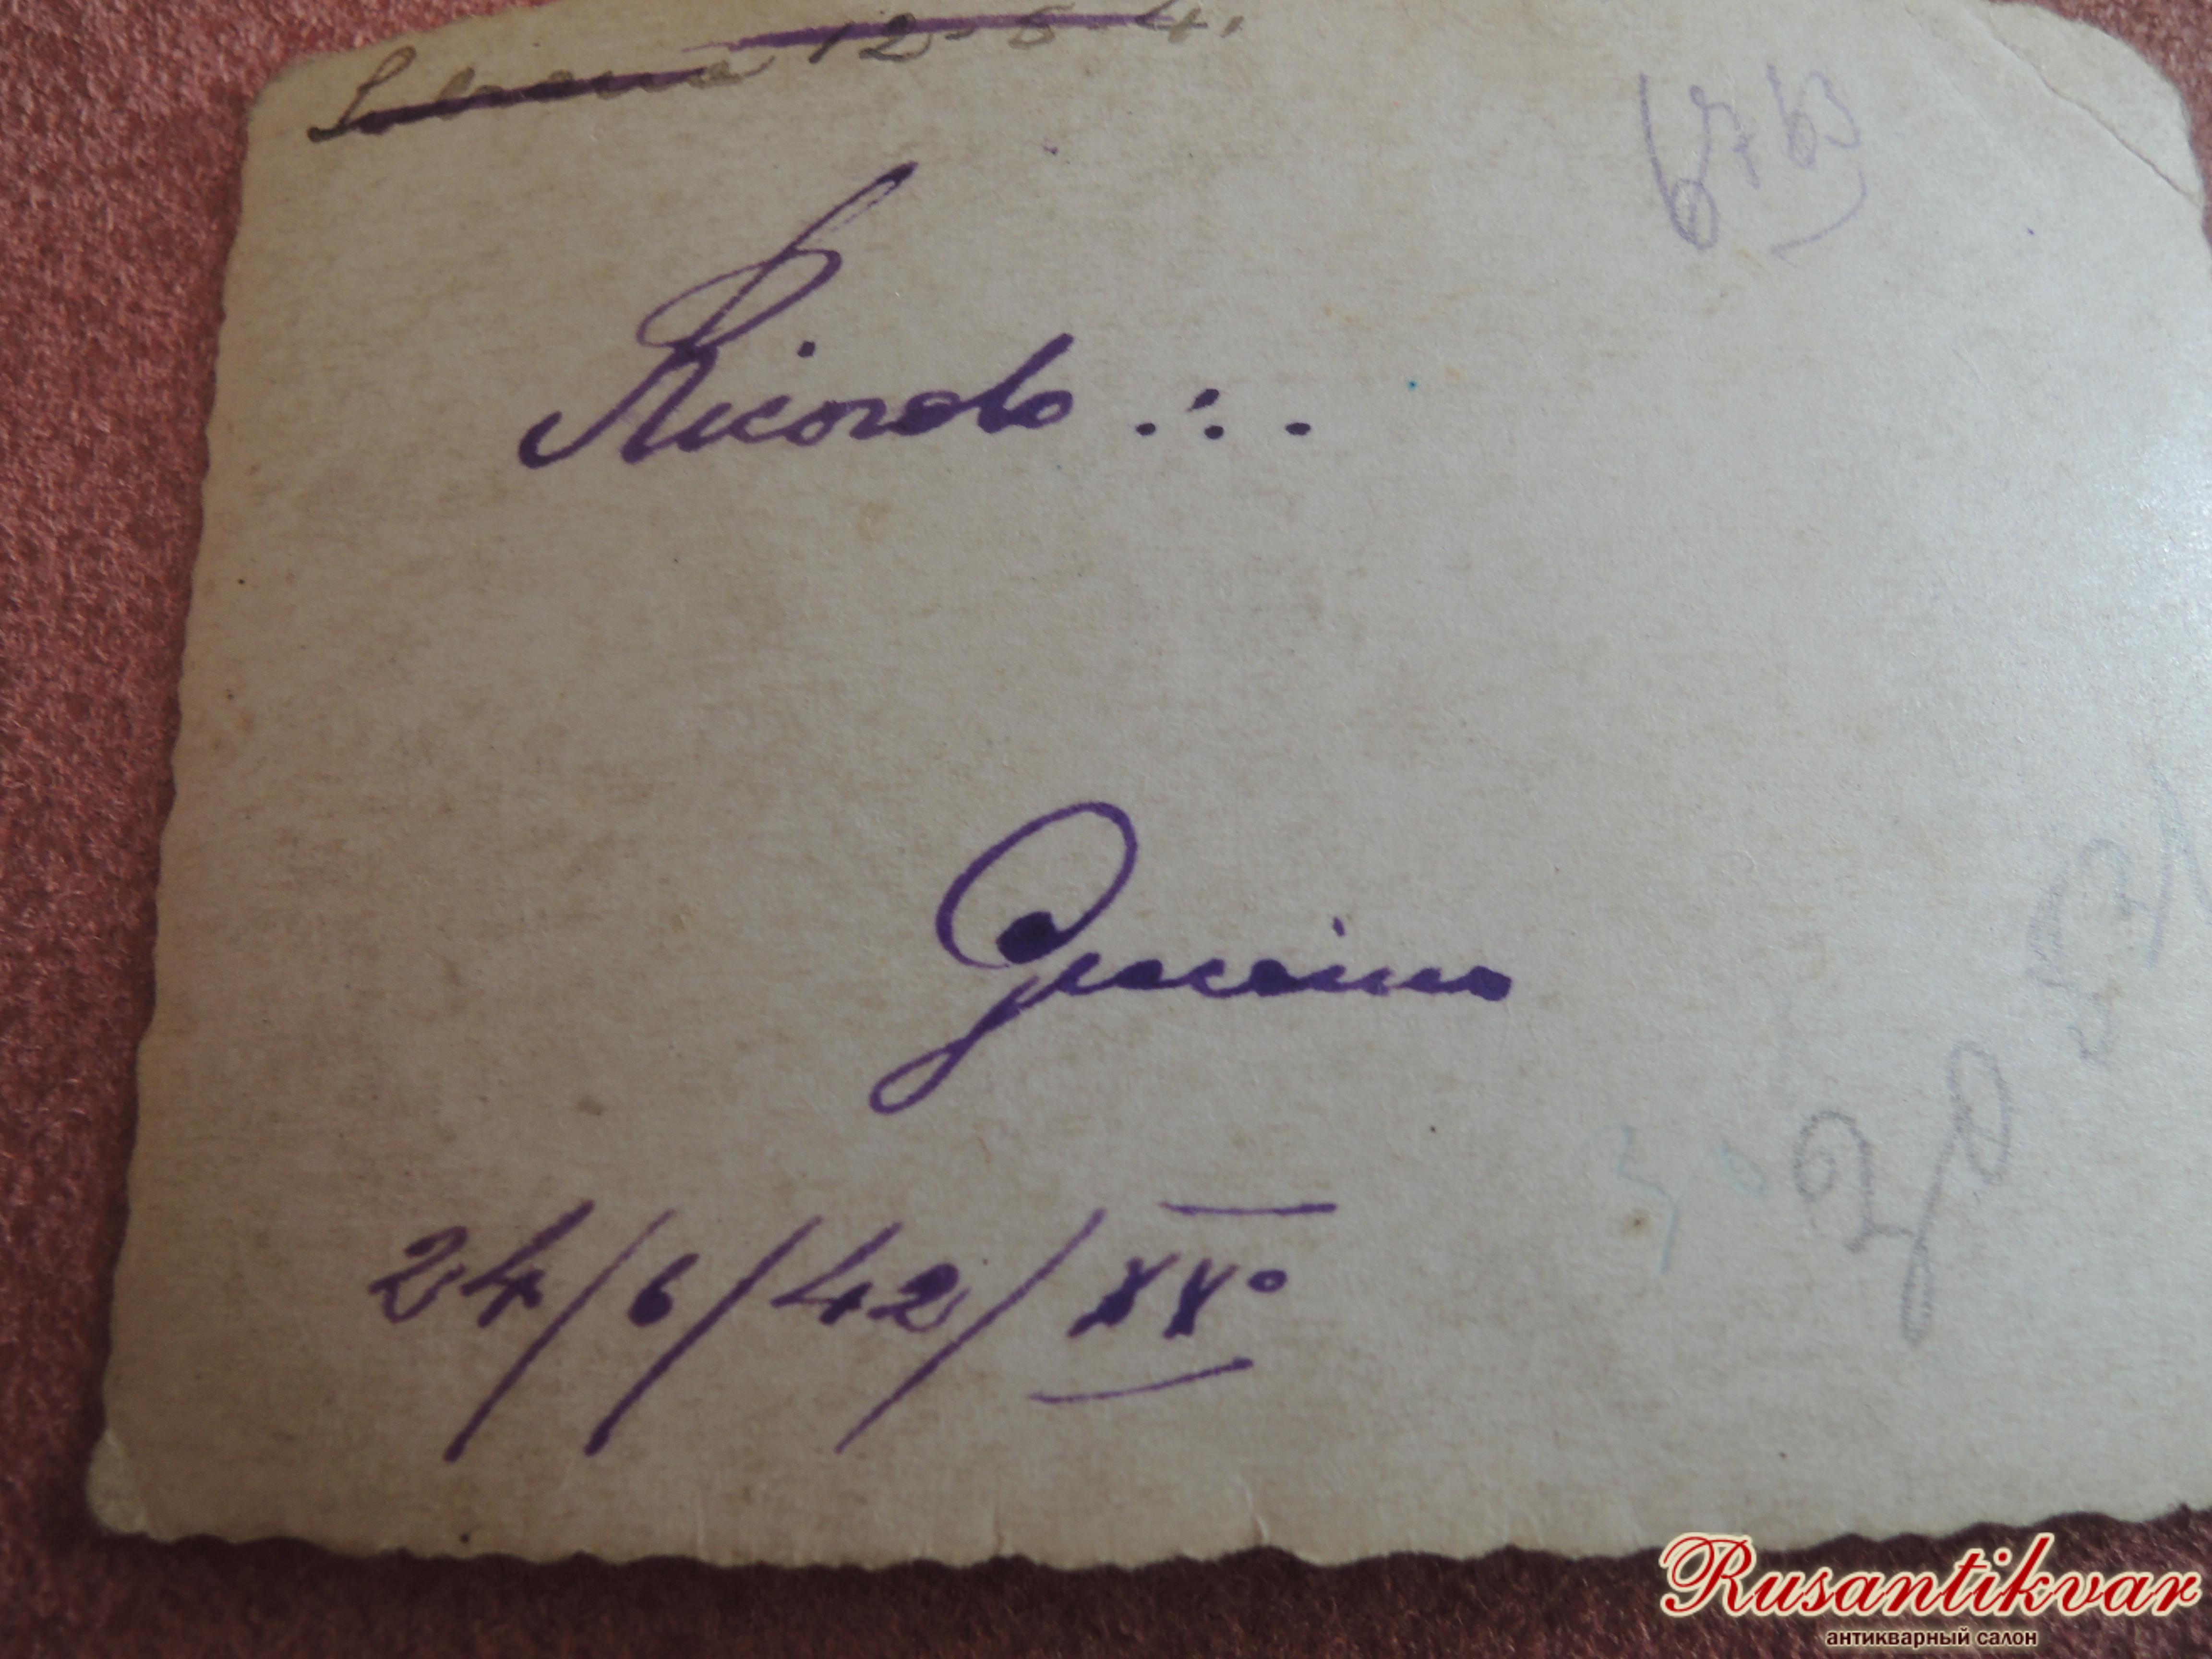 12-5-4.
6763
Ricordo . : .
Giacomo
24/6/42/XX°
Rusantikvar
антикварный салон